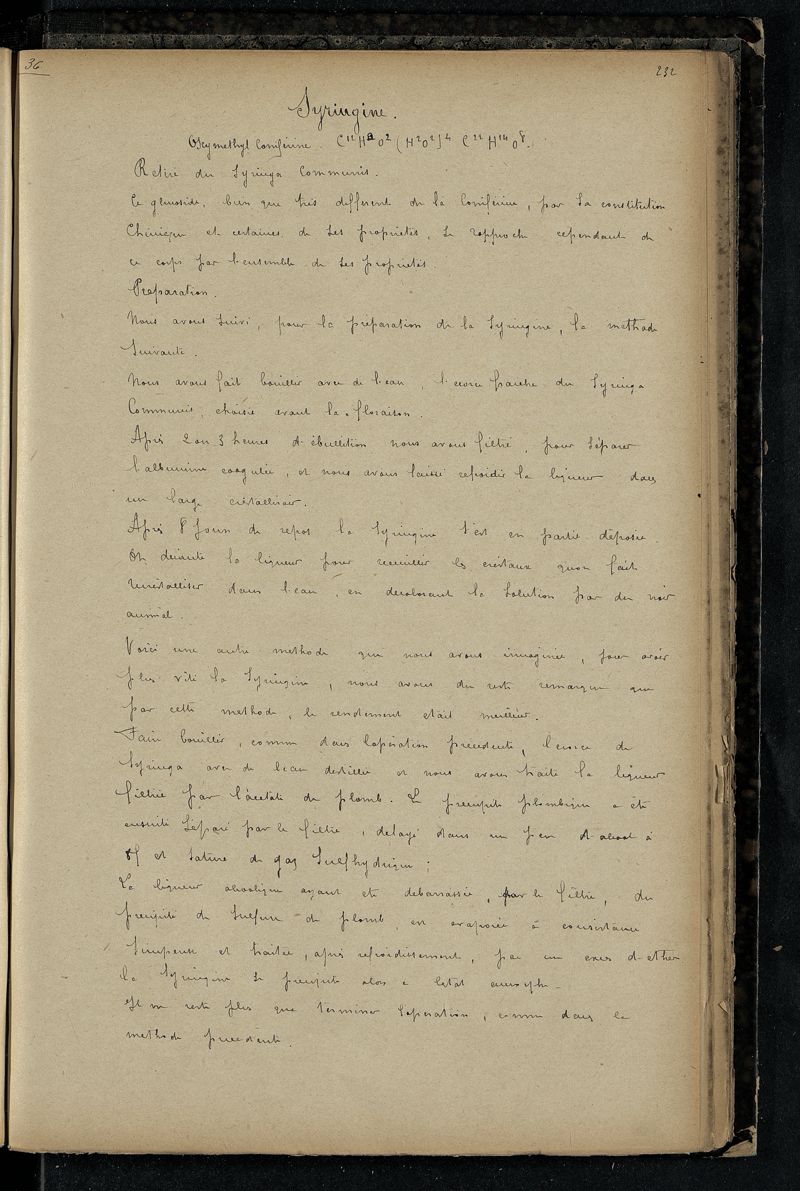 36
232
Syringine.
Oxymethyl Coniférine. C¹²H⁸O² (H²O²)⁴ C²²H¹⁴O⁸.
Retiré du Syringa Communis.
Ce glucoside, bien que très different de la Coniférine, par sa constitution
Chimique et certaines de ses propriétés, se rapproche cependant de
ce corps par l'ensemble de ses propriétés.
Préparation.
Nous avons suivi, pour la préparation de la Syringine, la méthode
Suivante.
Nous avons fait bouillir avec de l'eau, l'ecorce fraiche du Syringa
Communis, choisie avant la floraison.
Après 2 ou 3 heures d'ébullition nous avons filtré, pour séparer
l'albumine coagulée, et nous avons laissé refroidir la liqueur dans
un large cristallisoir.
Après 8 jours de repos la Syringine s'est en partie déposée.
On décante la liqueur pour recueillir les cristaux qu'on fait
recristalliser dans l'eau, en decolorant la solution par du noir
animal.
Voici une autre methode que nous avons imaginée, pour avoir
plus vite la Syringine, nous avons du reste remarqué que
par cette methode, le rendement etait meilleur.
Faire bouillir, comme dans l'opération precedente, l'ecorce de
Syringa avec de l'eau distillée et nous avons traité la liqueur
filtrée par l'acétate de plomb. Le precipité plombique a été
ensuite séparé par le filtre, delayé dans un peu d'alcool à
et saturé de gaz Sulfhydrique;
La liqueur alcoolique ayant été debarrassée, par le filtre, du
precipité de Sulfure de plomb, est evaporée à consistance
Sirupeuse et traitée, après refroidissement, par un exces d'ether
la Syringine se precipite alors a l'etat amorphe.
Il ne reste plus que terminer l'operation, comme dans la
methode precedente.